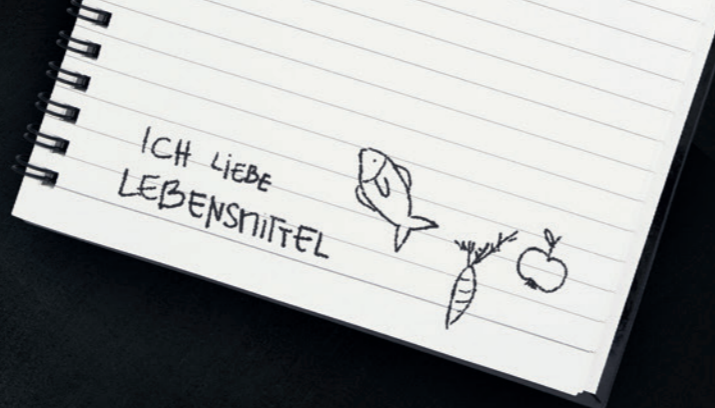 ICH LIEBE
LEBENSMITTEL